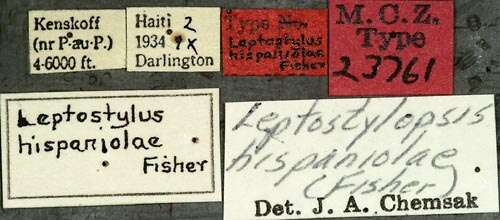 Kenskoff
(nr P-au-P.)
4-6000 ft.
Haiti 2
1934 IX
Darlington
Type
Leptostylus
hispaniolae
Fisher
M. C. Z.
Type
23761
Leptostylus
hispaniolae
Fisher
Leptostylopsis
hispaniolae
(Fisher)
Det. J. A. Chemsak